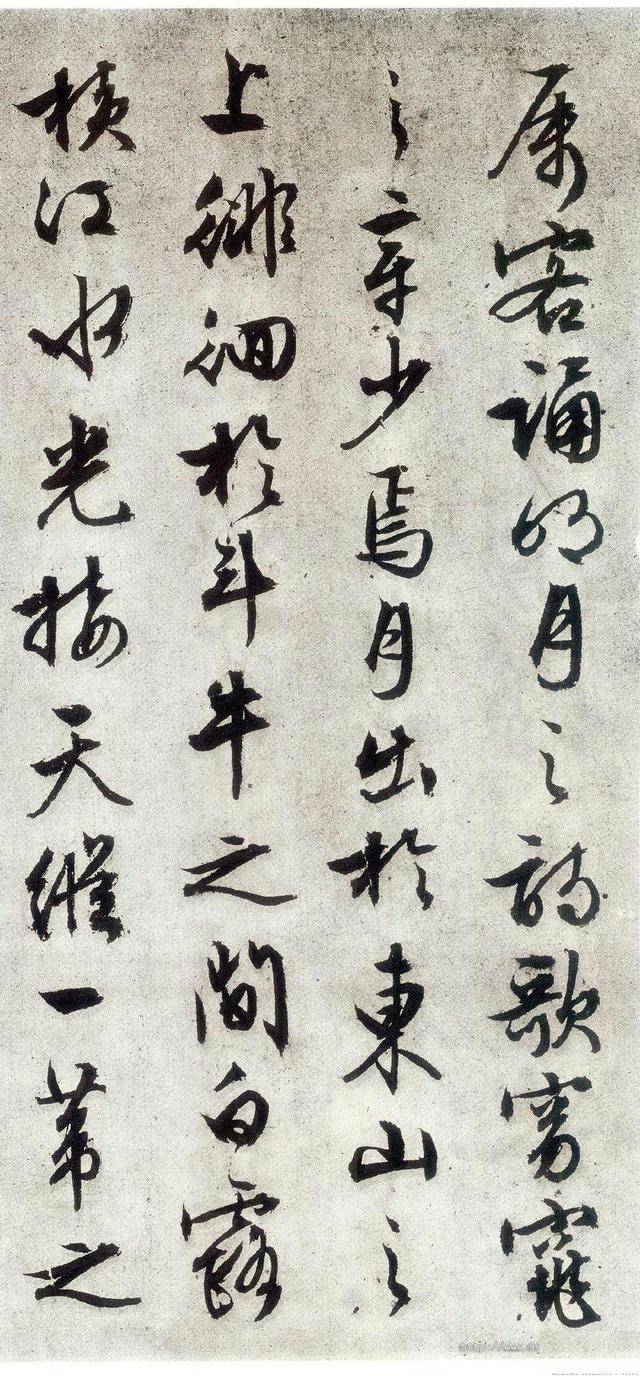 属客誦明月之詩歌窈窕
之章少焉月出於東山之
上徘徊於斗牛之間白露
横江水光接天縱一葦之